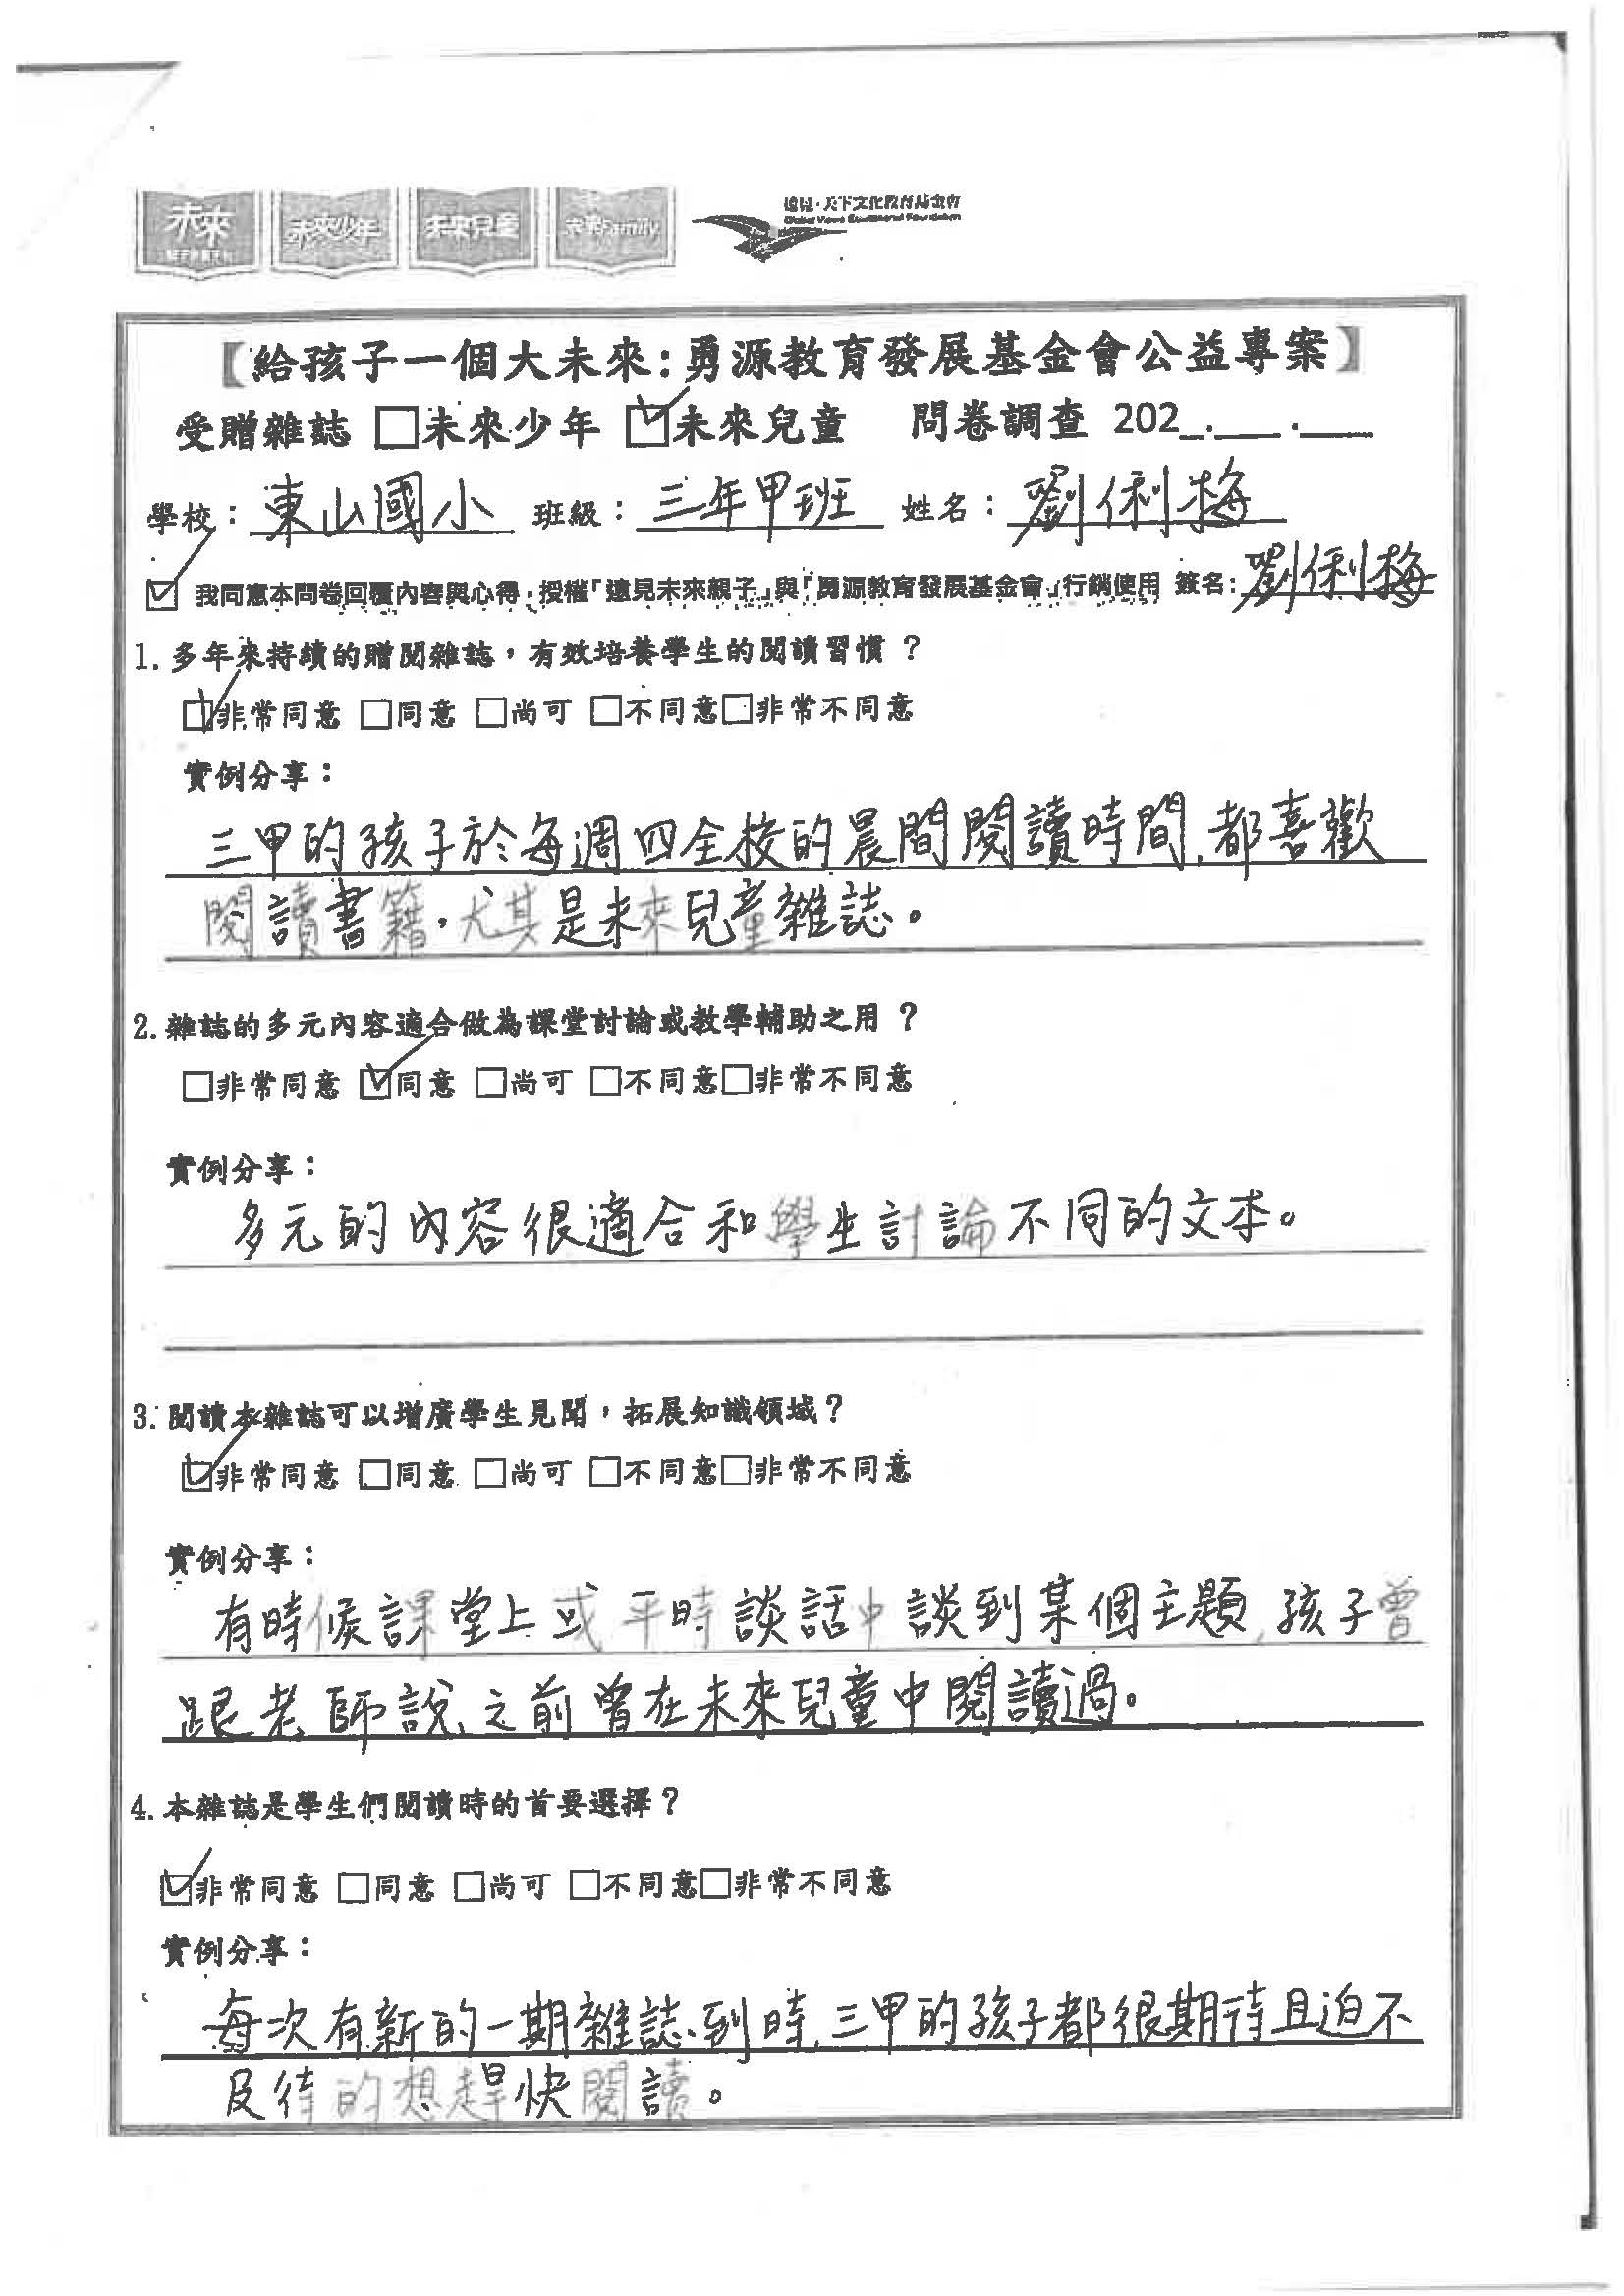 未來
未來少年
未來兒童
未來Family
遠見‧天下文化教育基金會
Global Views Educational Foundation
【給孩子一個大未來:勇源教育發展基金會公益專案】
受贈雜誌 □未來少年 ☑未來兒童 問卷調查 202_.___.___
學校:東山國小 班級:三年甲班 姓名:劉俐梅
☑ 我同意本問卷回覆內容與心得,授權「遠見未來親子」與「勇源教育發展基金會」行銷使用 簽名:劉俐梅
1. 多年來持續的贈閱雜誌,有效培養學生的閱讀習慣?
☑非常同意 □同意 □尚可 □不同意□非常不同意
實例分享:
三甲的孩子於每週四全校的晨間閱讀時間,都喜歡
閱讀書籍,尤其是未來兒童雜誌。
2. 雜誌的多元內容適合做為課堂討論或教學輔助之用?
□非常同意 ☑同意 □尚可 □不同意□非常不同意
實例分享:
多元的內容很適合和學生討論不同的文本。
3. 閱讀本雜誌可以增廣學生見聞,拓展知識領域?
☑非常同意 □同意 □尚可 □不同意□非常不同意
實例分享:
有時候課堂上或平時談話中談到某個主題,孩子曾
跟老師說、之前曾在未來兒童中閱讀過。
4. 本雜誌是學生們閱讀時的首要選擇?
☑非常同意 □同意 □尚可 □不同意□非常不同意
實例分享:
每次有新的一期雜誌到時,三甲的孩子都很期待且迫不
及待的想趕快閱讀。